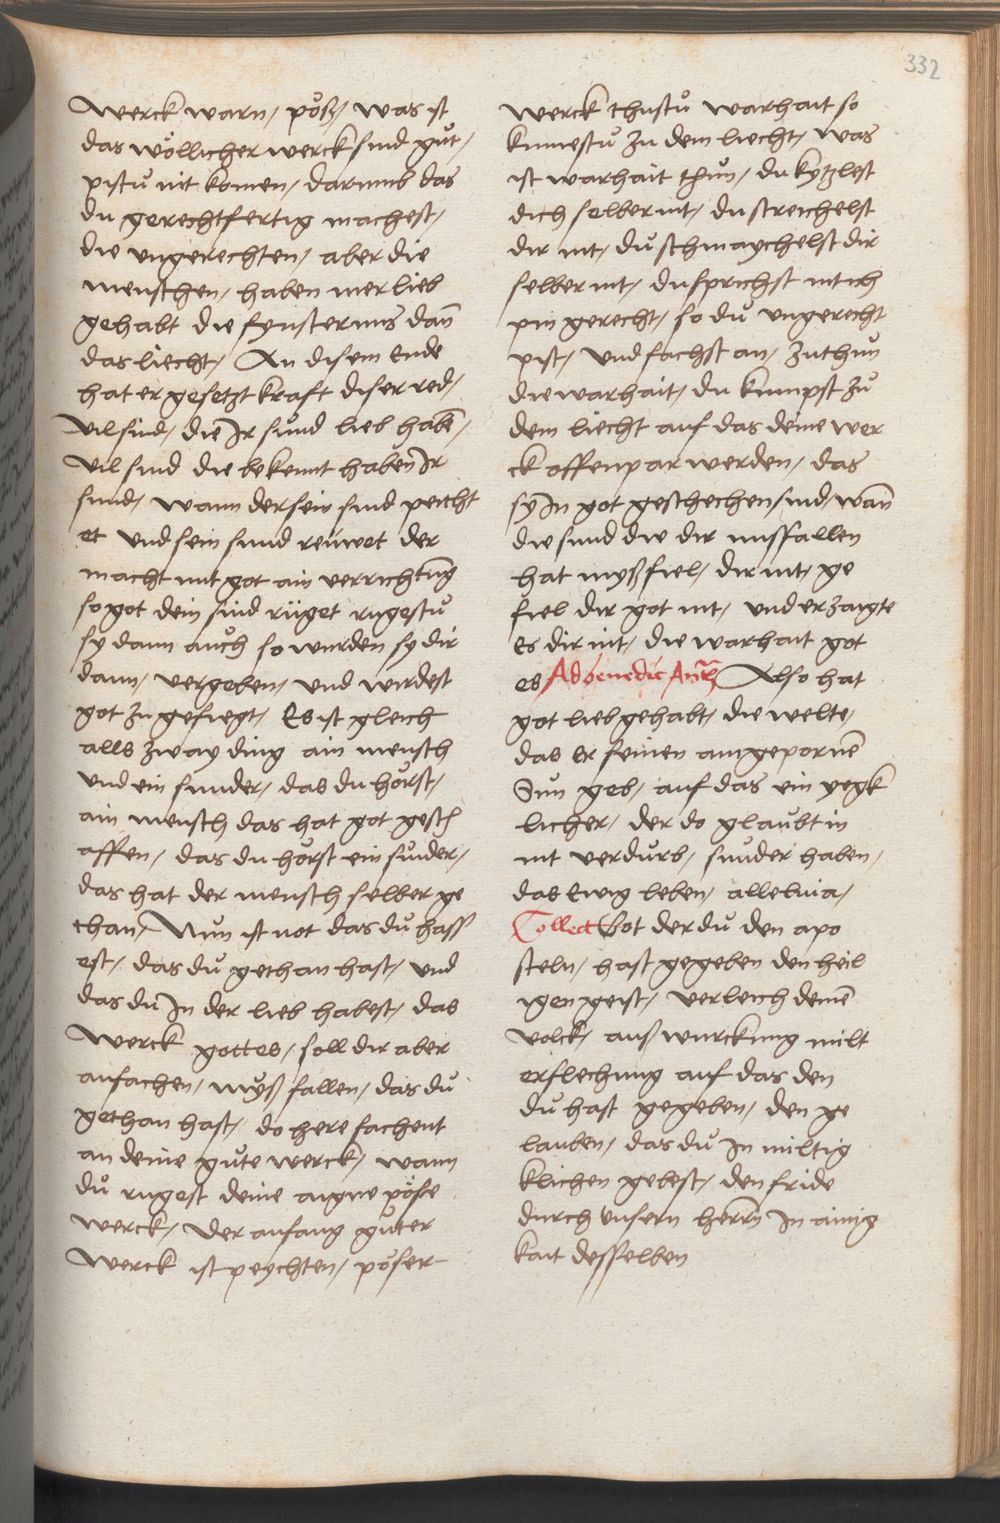 332
werck warn / pöß / was ist
das wöllicher werck sind gůt /
pistu nit komen / darumb das
du gerechtfertig machest /
die ungerechten / aber die
menschen / haben mer lieb
gehabt die fynsternus dañ
das liecht / An disem Ende
hat er gesetzt kraft diser red /
Vil sind / die Ir sünd lieb habē /
Vil sind die bekennt haben Ir
sünd / wann der sein sünd peicht
et Vnd sein sund reüwet der
macht mit got ain verrichtung
so got dein sünd rüget rugestu
sy dann auch so wurden sy dir
dann / vergeben / und wirdest
got zu gefiegt / Es ist gleich
alls zway ding ain mensch
und ein sunder / das du hörst /
ain mensch das hat got gesch
affen / das du hörst ein sunder /
das hat der mensch selber ge
than / Nun ist not das du hass
est / das du gethan hast / und
das du In der lieb habest / das
werck gottes / soll dir aber
anfachen / myß fallen / das du
gethan hast / do here fachent
an deine gůte werck / wann
du rugest deine aigne pöse
werck / der anfang gůter
werck ist peychten / pöser
werck thustu warhait so
kumestu zu dem liecht / was
ist warhait thun / du kytzlest
dich selber nit / du streichelst
dir nit / du schmaychelst dir
selber nit / du sprichst nit ich
pin gerecht / so du ungerecht
pist / und fachst an / zu thun
die warhait / du kumpst zu
dem liecht auf das deine wer
ck offenpar werden / das
sy In got geschechen sind / wañ
die sünd die dir missfallen
hat myßfiel / dir nit / ge
fiel dir got nit / und erzaigte
es dir nit / die warhait got
es Ad benedic Anth Also hat
got lieb gehabt / die welte /
das er seinen aingepornē
Sun geb / auf das ein yegk
licher / der do glaubt in
nit verdurb / sunder haben /
das Ewig leben / alleluia /
Collect Got der du den apo
steln / hast gegeben den heil
igen geist / verleich deinē
volck / auß wurckung milt
erflechung auf das den
du hast gegeben / den ge
lauben / das du In miltig
klichen gebest / den fride
durch unsern herrn In ainig
kait desselben